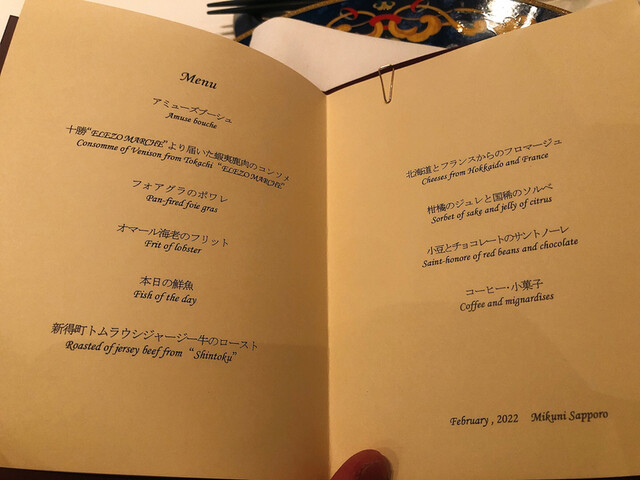 Menu
アミューズブーシュ
Amuse bouche
十勝“ELEZO MARCHE”より届いた蝦夷鹿肉のコンソメ
Consomme of Venison from Tokachi “ELEZO MARCHE”
フォアグラのポワレ
Pan-fired foie gras
オマール海老のフリット
Frit of lobster
本日の鮮魚
Fish of the day
新得町トムラウシジャージー牛のロースト
Roasted of jersey beef from “Shintoku”
北海道とフランスからのフロマージュ
Cheeses from Hokkaido and France
柑橘のジュレと国稀のソルベ
Sorbet of sake and jelly of citrus
小豆とチョコレートのサントノーレ
Saint-honore of red beans and chocolate
コーヒー・小菓子
Coffee and mignardises
February , 2022 Mikuni Sapporo